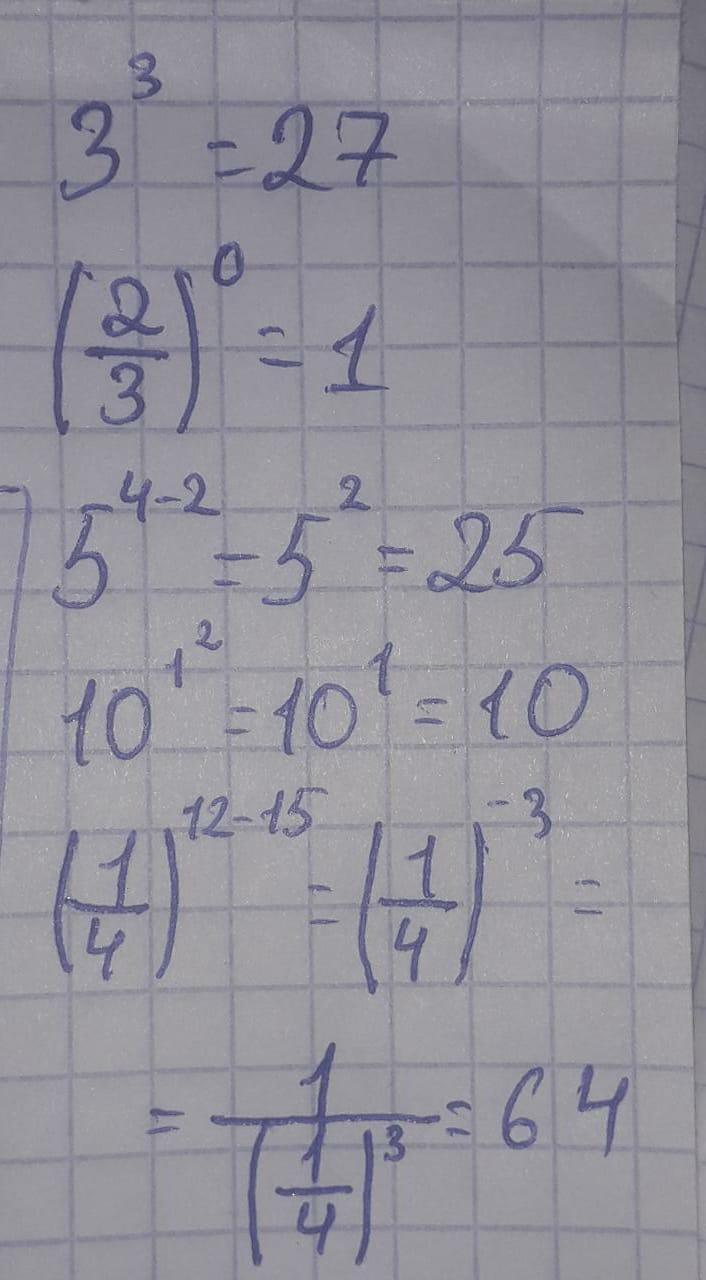 3³ = 27
(2/3)⁰ = 1
5⁴⁻² = 5² = 25
10^1^2 = 10¹ = 10
(1/4)¹²⁻¹⁵ = (1/4)⁻³ =
= 1/(1/4)³ = 64